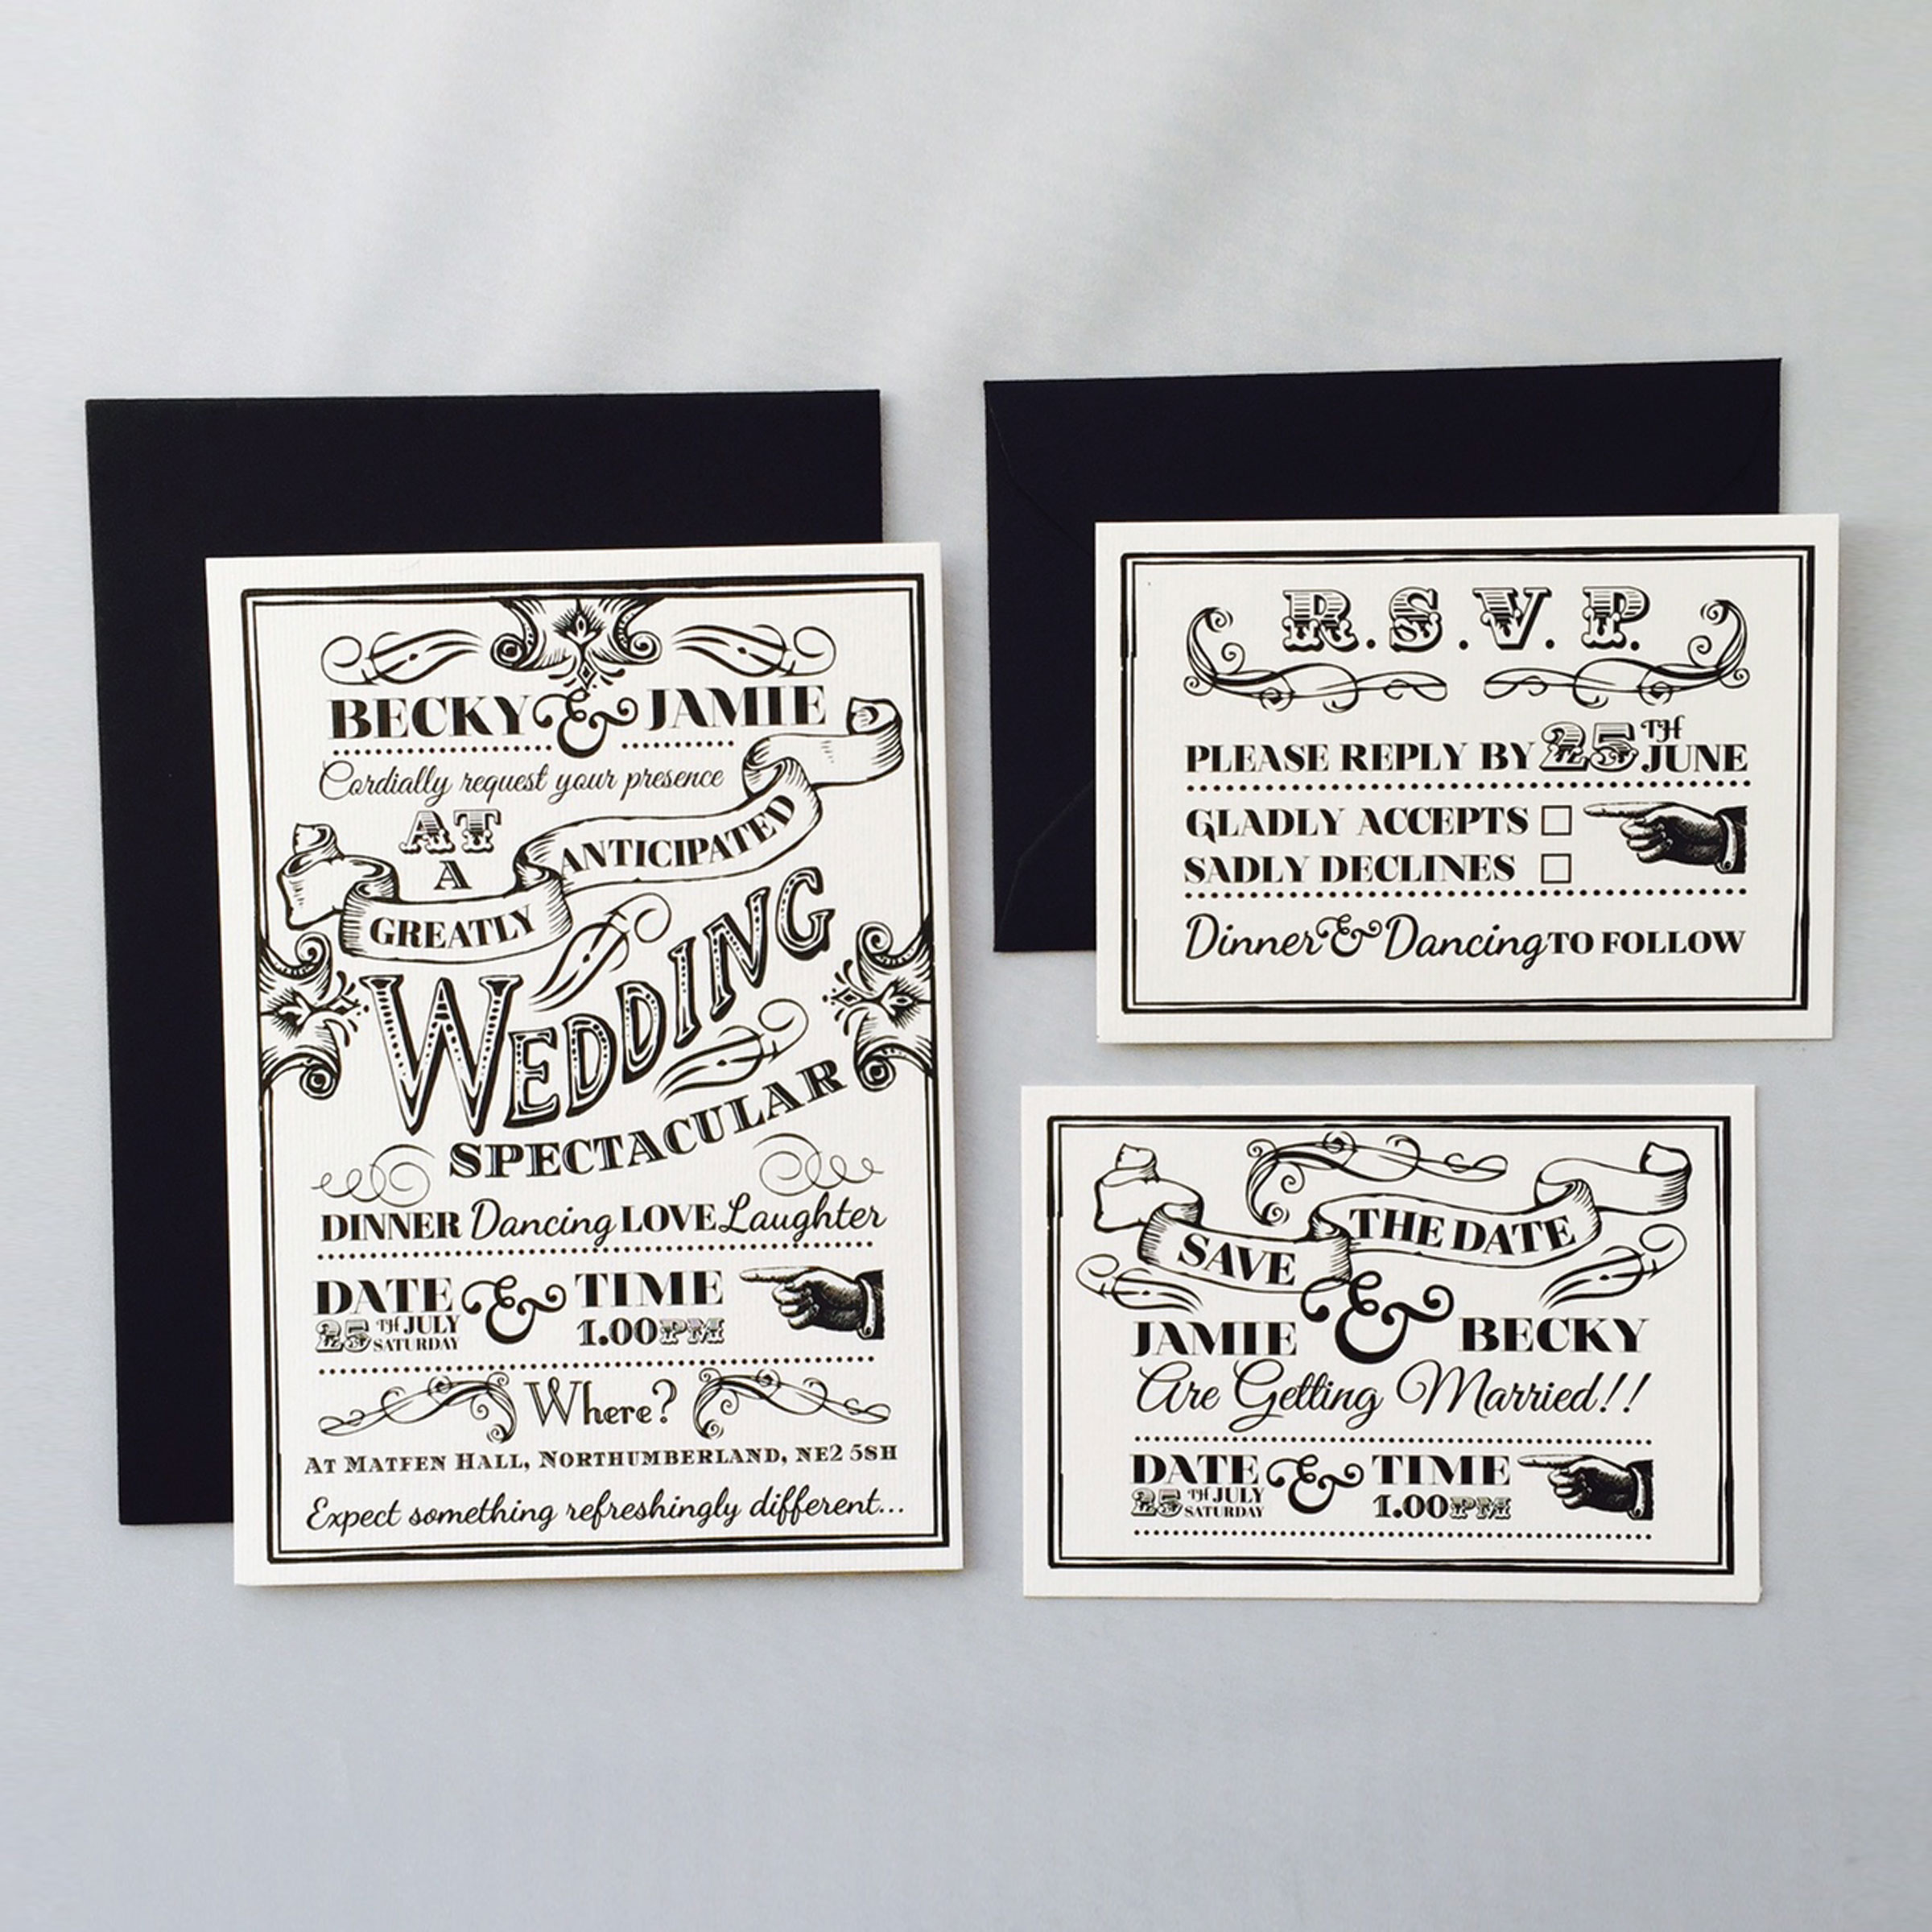 BECKY & JAMIE
Cordially request your presence
AT
A
GREATLY ANTICIPATED
WEDDING
SPECTACULAR
DINNER Dancing LOVE Laughter
DATE & TIME
25TH JULY SATURDAY 1.00PM
Where?
At Matfen Hall, Northumberland, NE2 5SH
Expect something refreshingly different...
R.S.V.P.
PLEASE REPLY BY 25TH JUNE
GLADLY ACCEPTS
SADLY DECLINES
Dinner & Dancing TO FOLLOW
SAVE THE DATE
JAMIE & BECKY
Are Getting Married!!
DATE & TIME
25TH JULY SATURDAY 1.00PM